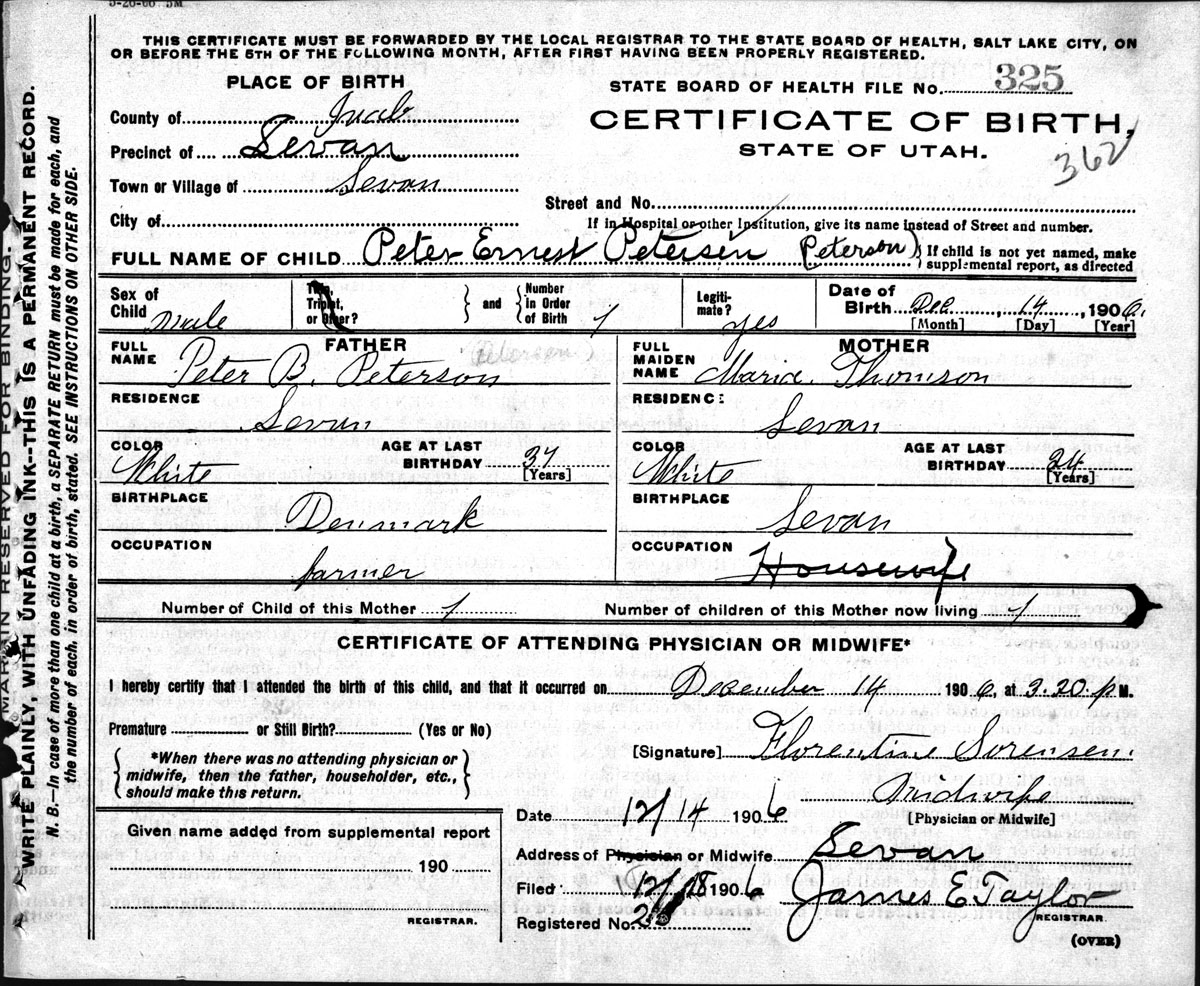 THIS CERTIFICATE MUST BE FORWARDED BY THE LOCAL REGISTRAR TO THE STATE BOARD OF HEALTH, SALT LAKE CITY, ON
OR BEFORE THE 5TH OF THE FOLLOWING MONTH, AFTER FIRST HAVING BEEN PROPERLY REGISTERED.
PLACE OF BIRTH
STATE BOARD OF HEALTH FILE No. 325
County of Juab
CERTIFICATE OF BIRTH,
Precinct of Levan
STATE OF UTAH.
362
Town or Village of Levan
Street and No.
City of
If in Hospital or other Institution, give its name instead of Street and number.
FULL NAME OF CHILD Peter Ernest Petersen (Peterson) If child is not yet named, make
supplemental report, as directed
Sex of Child male
Twin, Triplet, or Other? and Number in Order of Birth 1
Legitimate? yes
Date of Birth Dec. 14, 1906.
[Month] [Day] [Year]
FATHER
FULL NAME Peter B. Peterson (Petersen)
RESIDENCE Levan
COLOR White
AGE AT LAST BIRTHDAY 37 [Years]
BIRTHPLACE Denmark
OCCUPATION farmer
MOTHER
FULL MAIDEN NAME Maria Thomson
RESIDENCE Levan
COLOR White
AGE AT LAST BIRTHDAY 24 [Years]
BIRTHPLACE Levan
OCCUPATION Housewife
Number of Child of this Mother 1 Number of children of this Mother now living 1
CERTIFICATE OF ATTENDING PHYSICIAN OR MIDWIFE*
I hereby certify that I attended the birth of this child, and that it occurred on December 14 1906, at 3.20. p M.
Premature or Still Birth? (Yes or No)
[Signature] Florentine Sorensen.
*When there was no attending physician or
midwife, then the father, householder, etc.,
should make this return.
Midwife
[Physician or Midwife]
Date 12/14 1906
Given name added from supplemental report
190
REGISTRAR.
Address of Physician or Midwife Levan
Filed 12/18 1906
James E Taylor
REGISTRAR.
Registered No.
(OVER)
MARGIN RESERVED FOR BINDING.
WRITE PLAINLY, WITH UNFADING INK--THIS IS A PERMANENT RECORD.
N. B.—In case of more than one child at a birth, a SEPARATE RETURN must be made for each, and
the number of each, in order of birth, stated. SEE INSTRUCTIONS ON OTHER SIDE.